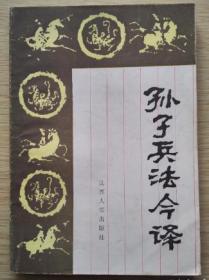 孙子兵法今译
江西人民出版社